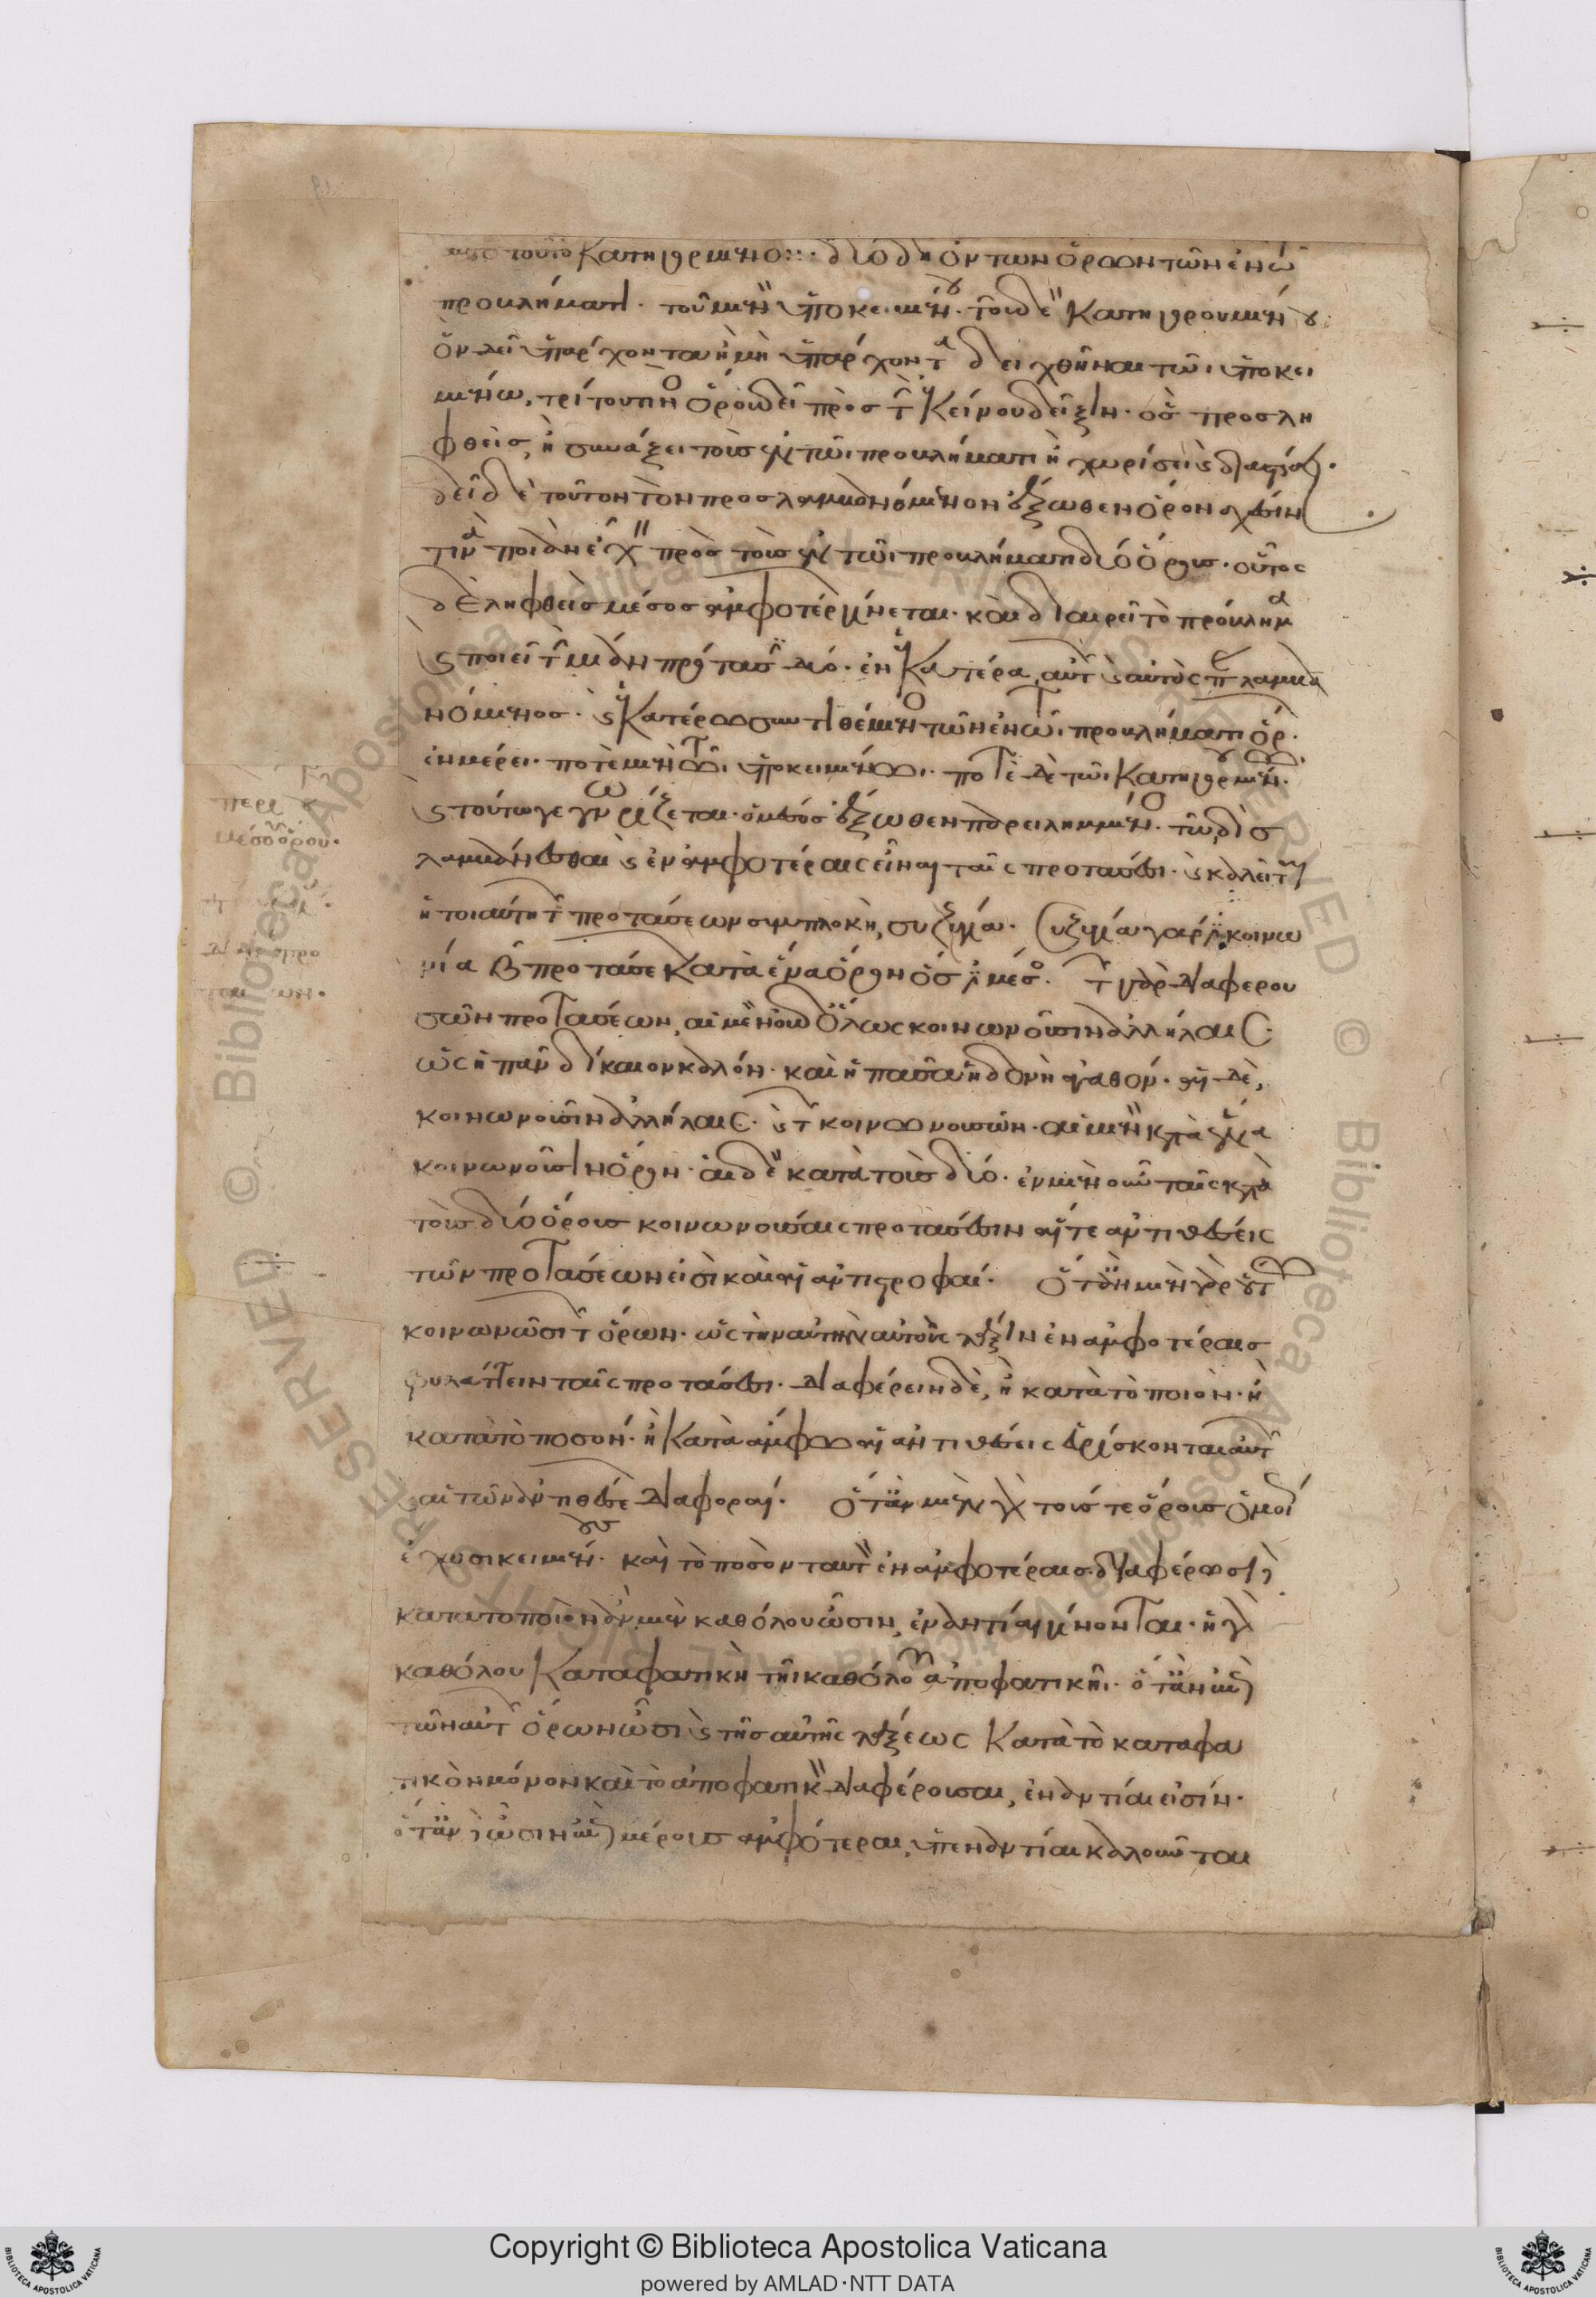 αὐτὸ τοῦτο κατηγορούμενον· δύο δὴ ὄντων ὅρων τῶν ἐν τῷ
προβλήματι· τοῦ μὲν ὑποκειμένου· τοῦ δὲ κατηγορουμένου·
ὃν δεῖ ὑπάρχοντα ἢ μὴ ὑπάρχοντα δειχθῆναι τῶι ὑποκει
μένω, τρίτου τινὸς ὅρου δεῖ πρὸς τὴν ἐκείνου δεῖξιν· ὃς προσλη
φθεὶς, ἢ συνάξει τοὺς ἐν τῶι προβλήματι ἢ χωρίσει καὶ διαιρήσει·
δεῖ δὲ τοῦτον τὸν προσλαμβανόμενον ἔξωθεν ὅρον σχέσιν
τινὰ ποιὰν ἔχειν πρὸς τοὺς ἐν τῶι προβλήματι δύο ὅρους· οὗτος
δὲ ληφθεὶς μέσος ἀμφοτέρων γίνεται· καὶ διαιρεῖ τὸ πρόβλημα
καὶ ποιεῖ τὴν μίαν πρότασιν δύο· ἐν ἑκατέρα αὐτῶν καὶ αὐτὸς παραλαμβα
νόμενος· καὶ ἑκατέρω συντιθέμενος τῶν ἐν τῶι προβλήματι ὅρων·
ἐν μέρει· ποτὲ μὲν τῶι ὑποκειμένωι· ποτὲ δὲ τῶι κατηγορουμένωι·
καὶ τούτω γε γνωρίζεται ὁ μέσος ἔξωθεν παρειλημμένος· τῶ δὶς
λαμβάνεσθαι καὶ ἐν ἀμφοτέραις εἶναι ταῖς προτάσεσι· καὶ καλεῖται
ἡ τοιαύτη τῶν προτάσεων συμπλοκὴ, συζυγία· συζυγία γάρ ἐστι κοινω
νία β προτάσεων κατὰ ἕνα ὅρον ὅς ἐστι μέσος· τῶν γὰρ διαφερου
σῶν προτάσεων, αἱ μὲν οὐδ' ὅλως κοινωνοῦσιν ἀλλήλαις·
ὡς ἡ πᾶν δίκαιον καλόν· καὶ ἡ πᾶσα ἡδονὴ ἀγαθόν· αἱ δὲ,
κοινωνοῦσιν ἀλλήλαις· καὶ τῶν κοινωνουσῶν· αἱ μὲν κατὰ ἕνα
κοινωνοῦσιν ὅρον· αἱ δὲ κατὰ τοὺς δύο· ἐν μὲν οὖν ταῖς κατὰ
τοὺς δύο ὅρους κοινωνούσαις προτάσεσιν αἵ τε ἀντιθέσεις
τῶν προτάσεων εἰσὶ καὶ αἱ ἀντιστροφαί· ὅταν μὲν γὰρ οὕτω
κοινωνῶσι τῶν ὅρων· ὡς τὴν αὐτὴν αὐτοὺς τάξιν ἐν ἀμφοτέραις
φυλάττειν ταῖς προτάσεσι· διαφέρειν δὲ, ἢ κατὰ τὸ ποιὸν· ἢ
κατὰ τὸ ποσόν· ἢ κατὰ ἄμφω αἱ ἀντιθέσεις εὑρίσκονται αὐτῶν
καὶ αἱ τῶν ἀντιθέσεων διαφοραί· ὅταν μὲν γὰρ τούς τε ὅρους ὁμοίως
ἔχουσι κειμένους· καὶ τὸ ποσὸν ταυτὸν ἐν ἀμφοτέραις διαφέρωσι δὲ
κατὰ τὸ ποιὸν ἂν μὲν καθόλου ὦσιν, ἐναντίαι γίνονται· ἡ γὰρ
καθόλου καταφατικὴ τῆι καθόλου ἀποφατικῆι· ὅταν αἱ
τῶν αὐτῶν ὅρων ὦσι καὶ τῆς αὐτῆς τάξεως κατὰ τὸ καταφα
τικὸν μόνον καὶ τὸ ἀποφατικὸν διαφέρουσαι, ἐναντίαι εἰσίν·
ὅταν δὲ ὦσιν ἐπὶ μέρους ἀμφότεραι, ὑπεναντίαι καλοῦνται
περὶ τοῦ
μέσου ὅρου·
Copyright © Biblioteca Apostolica Vaticana
powered by AMLAD·NTT DATA